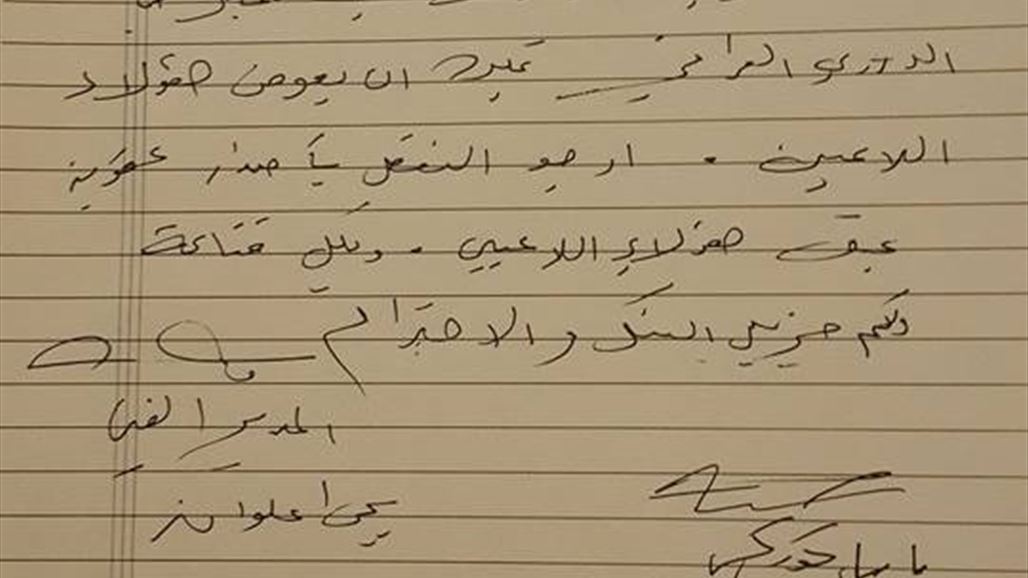 الدوري العراقي يجب ان يعوض هؤلاء
اللاعبين . ارجو التفضل بأصدار عقوبة
بحق هؤلاء اللاعبين . وبكل قناعة
ولكم جزيل الشكر والاحترام
المدير الفني
يحيى علوان
باسل كوركيس